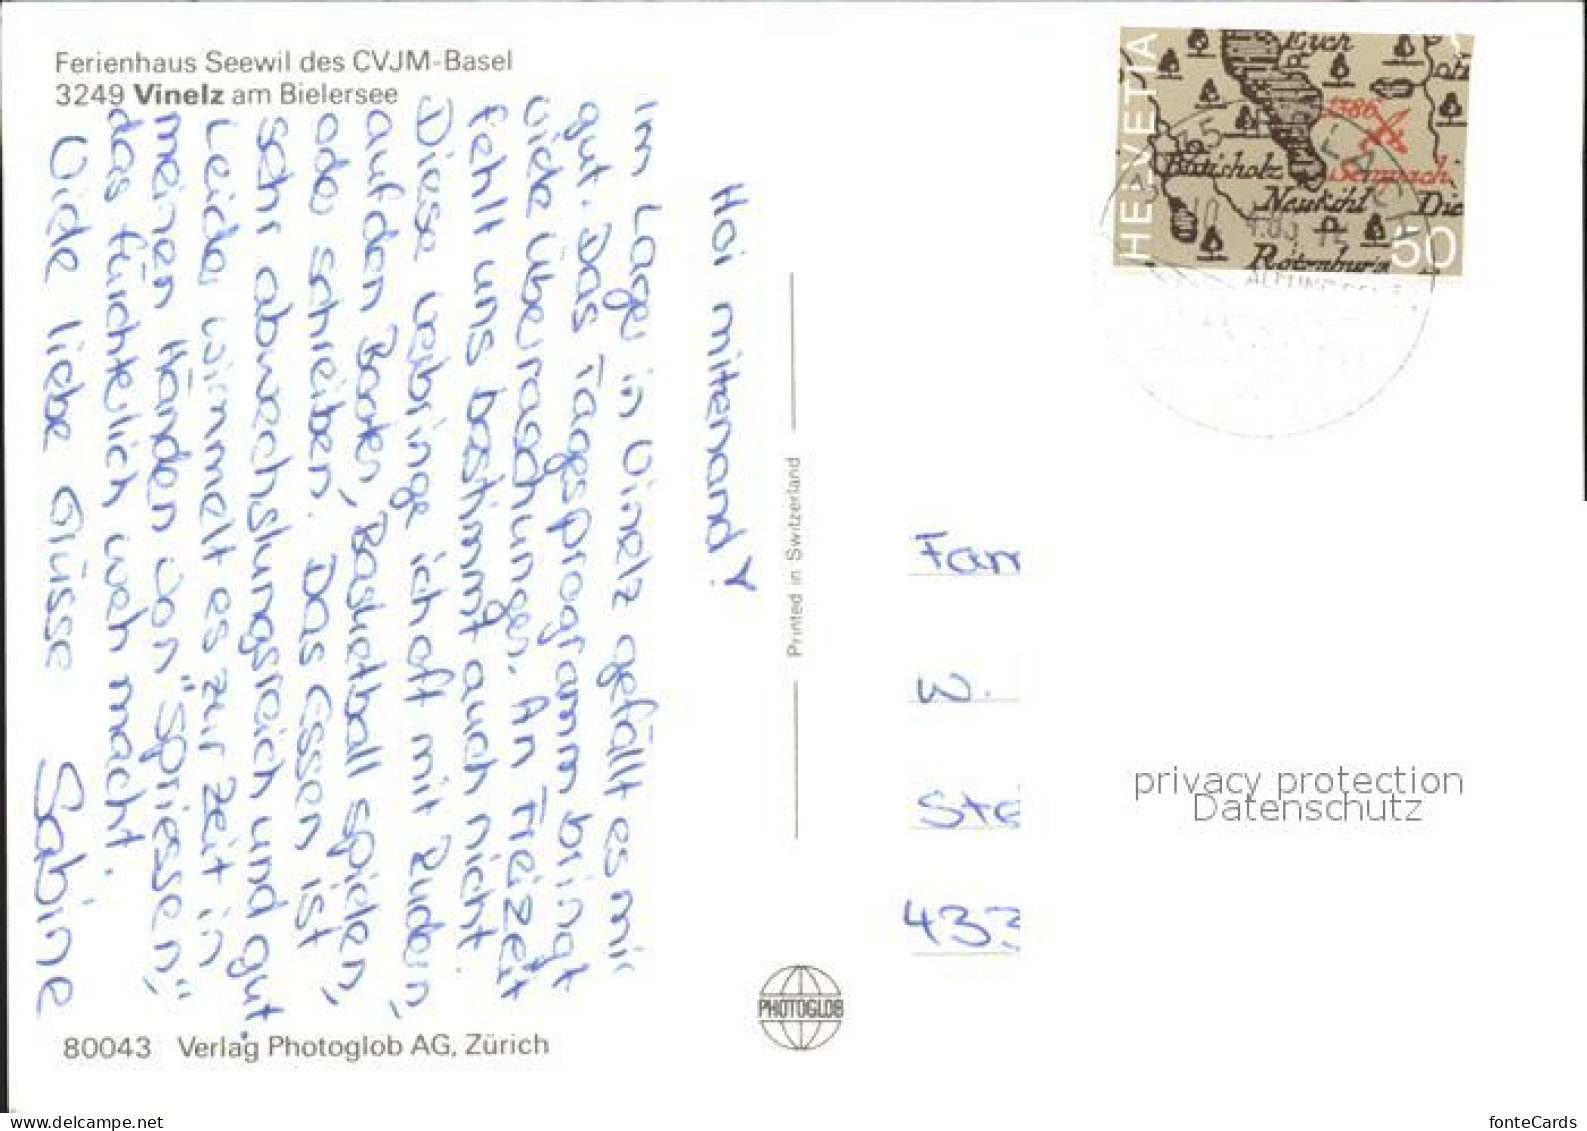 Ferienhaus Seewil des CVJM-Basel
3249 Vinelz am Bielersee
Hoi mitenand!
Im Lager in Vinelz gefällt es mir
gut. Das Tagesprogramm bringt
viele Überraschungen. An Freizeit
fehlt uns bestimmt auch nicht.
Diese verbringe ich oft mit Rudern,
auf den Booten, Basketball spielen,
oder schreiben. Das Essen ist
sehr abwechslungsreich und gut.
Leider wimmelt es zur Zeit in
meinen Händen von "Spriessen",
das fürchterlich weh macht.
Viele liebe Grüsse Sabine
80043 Verlag Photoglob AG, Zürich
Printed in Switzerland
PHOTOGLOB
HELVETIA
Eich
1386
Sempach
Neukihl
Die
Rotenburg
50
Fam
W.
Ste
433
privacy protection
Datenschutz
www.delcampe.net
fonteCards